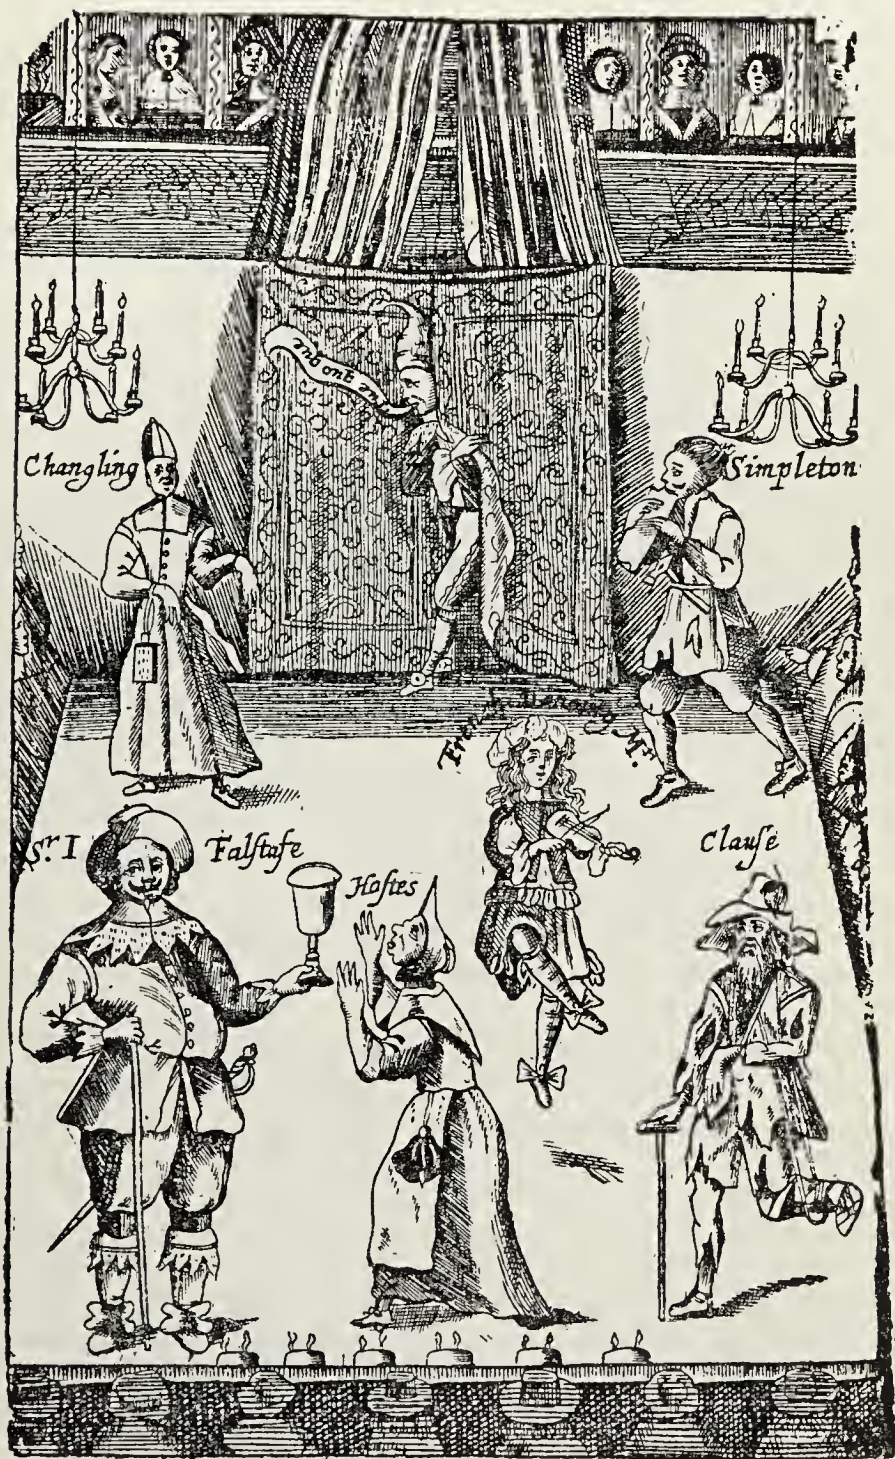 Tu quoque
Changling
Simpleton
French Dancing Mr.
Sr. I Falstafe
Hostes
Clause